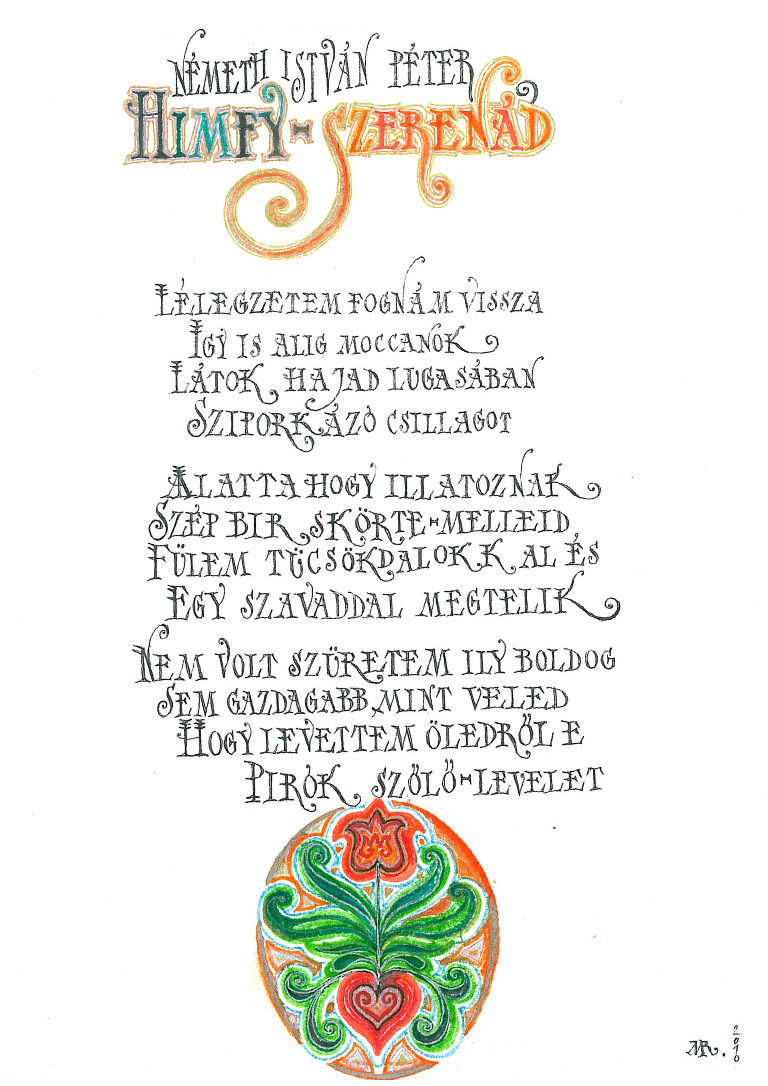 NÉMETH ISTVÁN PÉTER
HIMFY-SZERENÁD
LÉLEGZETEM FOGNÁM VISSZA
ÍGY IS ALIG MOCCANOK
LÁTOK HAJAD LUGASÁBAN
SZIPORKÁZÓ CSILLAGOT
ALATTA HOGY ILLATOZNAK
SZÉP BIRSKÖRTE-MELLEID
FÜLEM TÜCSÖKDALOKKAL ÉS
EGY SZAVADDAL MEGTELIK
NEM VOLT SZÜRETEM ILY BOLDOG
SEM GAZDAGABB MINT VELED
HOGY LEVETTEM ÖLEDRŐL E
PIRÓK SZŐLŐ-LEVELET
MR. 2010